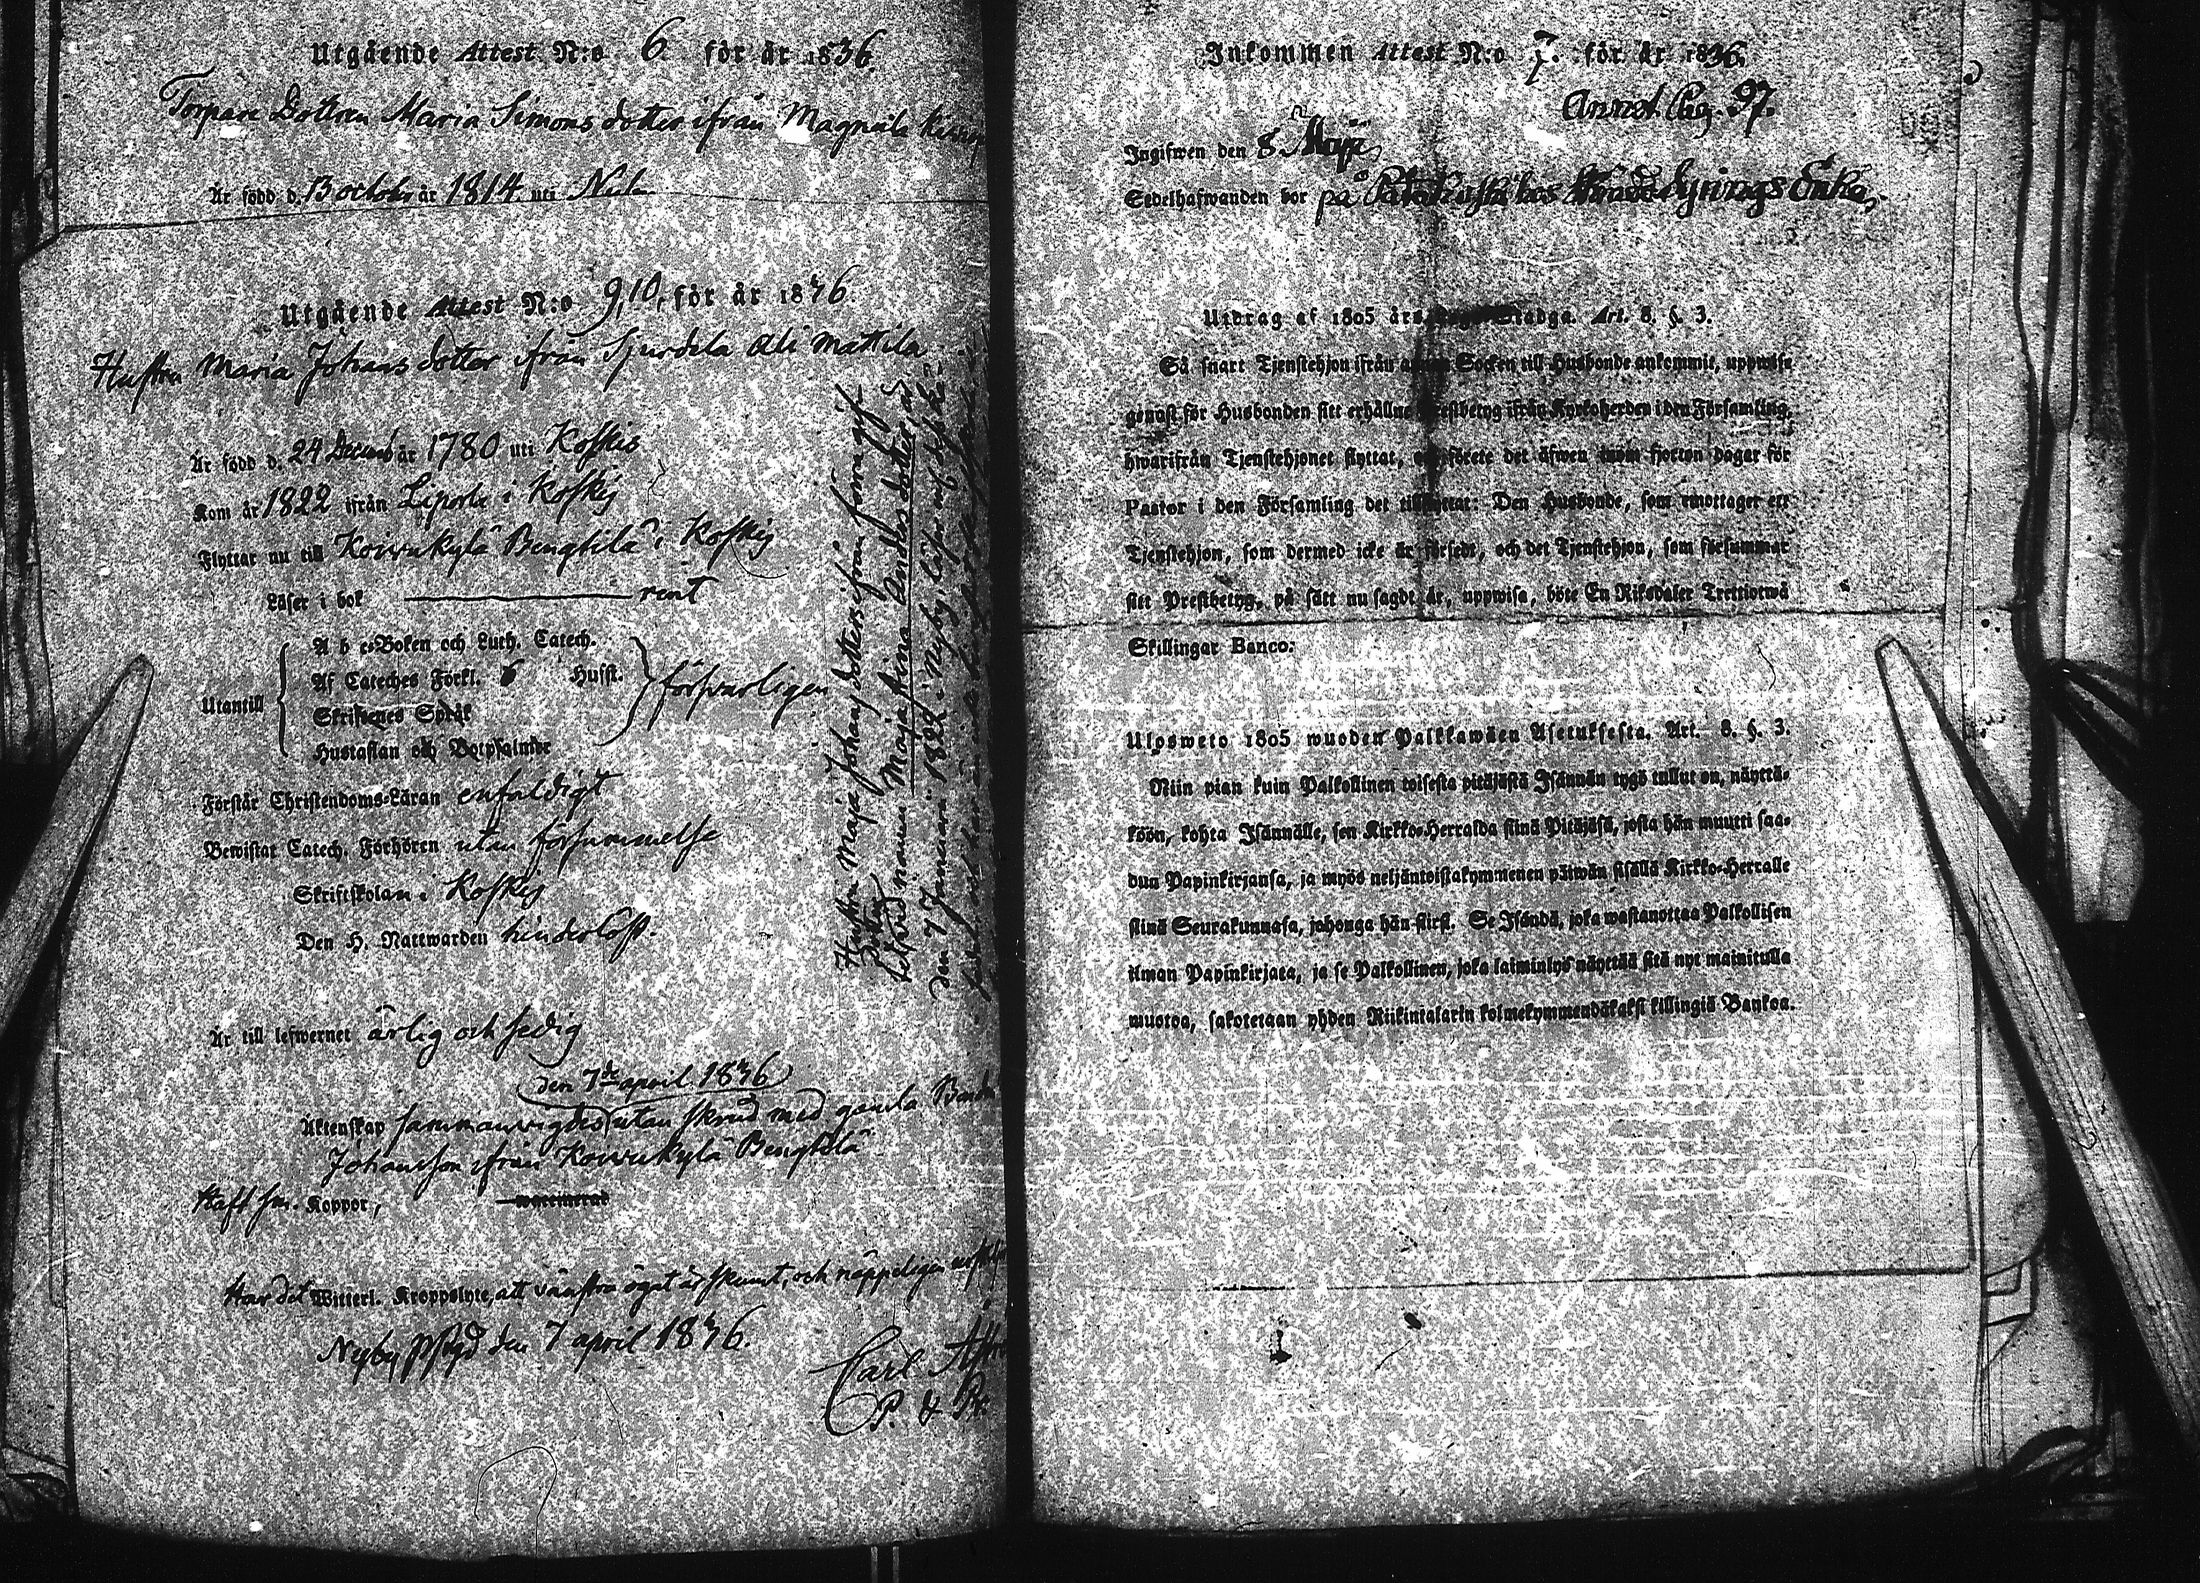 Utgående Attest N:o 6 för år 1836.
Torpare Dottren Maria Simons dotter ifrån Magnula
Är född d. 13 octobr år 1814. uti
Utgående Attest N:o 9,10, för år 1836
Hustru Maria Johans dotter ifrån Sjurdela Ali Mattila
Är född d. 24 Decemb år 1780 uti Koskis
Kom år 1822 ifrån Liporla i Koskis
Flyttar nu till Koivukylä Bengtilä i Koskis
Läser i bok rent
Utantill
A b c-Boken och Luth. Catech.
Af Cateches Förkl. 6 Husst.
Skriftenes Språk
Hustaflan och Botpsalmer
försvarligen
Förstår Christendoms-Läran enfaldigt
Bewistar Catech. Förhören utan försummelse
Skriftskolan i Koskis
Den H. Nattwarden hinderlöst.
Är till lefwernet ärlig och sedig
den 7de april 1836
Äktenskap sammanvigdes utan skrud med gamla
Johansson ifrån Koivukylä Bengtilä
Haft sm. Koppor,
Har det Witterl. Kroppslyte, att vänstra ögat är skumt, och näppeligen
Nyby den 7 april 1836.
Carl
P. & Pr.
Hustru Maja Johansdotters ifrån förra gifte
Dotter
vid namn Maja Stina Andersdotter, född
den 7 Januari 1822 i Nyby, läser
Inkommen Attest N:o 7. för år 1836.
Annot. Pag. 97.
Ingifwen den 8 Maji
Sedelhafwanden bor på hos Enka
Utdrag af 1805 års Stadga. Art. 8. §. 3.
Så snart Tjenstehjon ifrån annan Socken till Husbonde ankommit, uppwise
genast för Husbonden sitt erhållne Prestbetyg ifrån Kyrkoherden i den Församling,
hwarifrån Tjenstehjonet flyttat, och förete det äfwen inom fjorton dagar för
Pastor i den Församling det tillflyttat: Den Husbonde, som emottager ett
Tjenstehjon, som dermed icke är försedt, och det Tjenstehjon, som försummar
sitt Prestbetyg, på sätt nu sagdt är, uppwisa, böte En Riksdaler Trettiotwå
Skillingar Banco.
Ulosweto 1805 wuoden Palkkawäen Asetuksesta. Art. 8. §. 3.
Niin pian kuin Palkollinen toisesta pitäjästä Isännän tygö tullut on, näyttä-
köön, kohta Isännälle, sen Kirkko-Herralda siinä Pitäjäsä, josta hän muutti saa-
dun Papinkirjansa, ja myös neljäntoistakymmenen päiwän sisällä Kirkko-Herralle
siinä Seurakunnasa, johonga hän siirsi. Se Isändä, joka wastanottaa Palkollisen
ilman Papinkirjata, ja se Palkollinen, joka laiminlyö näyttää sitä nyt mainitulla
muotoa, sakotetaan yhden Riikintalarin kolmekymmendäkaksi killingiä Bankoa.